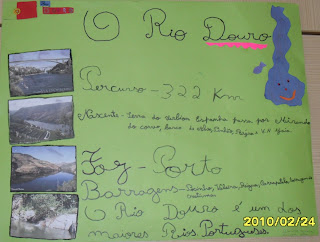 O Rio Douro
Percurso - 322 Km
Nascente - Serra do Urbion Espanha passa por Miranda
do corvo, barca
Foz - Porto
Barragens - Pocinho, Valeira, Régua, Carrapatelo,
O Rio Douro é um dos
maiores Rios Portugueses.
2010/02/24